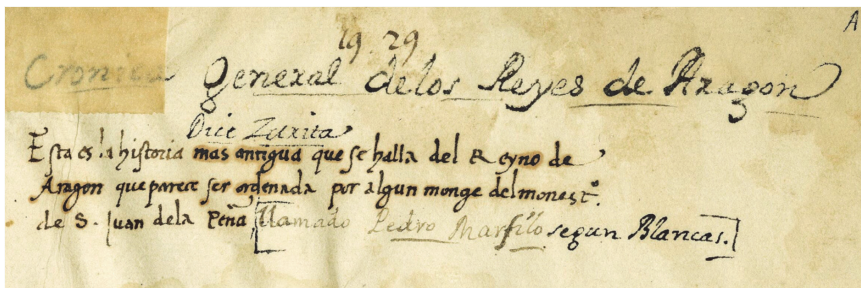 A
19. 29
Cronica General de los Reyes de Aragon
Dice Zurita
Esta es la historia mas antigua que se halla del Reyno de
Aragon que parece ser ordenada por algun monge del monestº.
de S. Juan dela Peña [llamado Pedro Marfilo segun Blancas.]